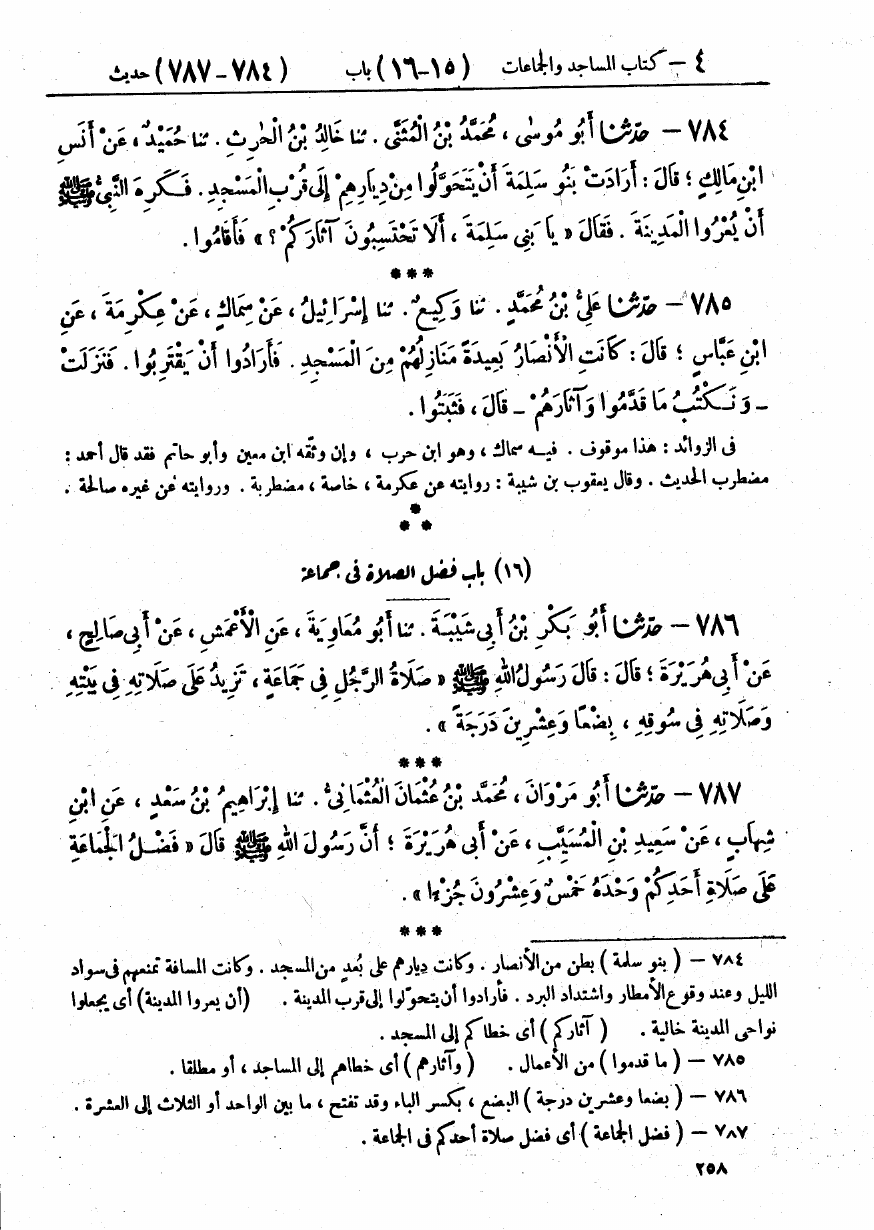 ٤ – كتاب المساجد والجماعات (١٥–١٦) باب (٧٨٤–٧٨٧) حديث
٧٨٤ – حدّثنا أَبُو مُوسَى ، مُحَمَّدُ بْنُ الْمُثَنَّى . ثنا خَالِدُ بْنُ الْحٰرِثِ . ثنا حُمَيْدٌ ، عَنْ أَنَسِ
ابْنِ مَالِكٍ ؛ قَالَ : أَرَادَتْ بَنُو سَلِمَةَ أَنْ يَتَحَوَّلُوا مِنْ دِيَارِهِمْ إِلَى قُرْبِ الْمَسْجِدِ . فَكَرِهَ النَّبِيُّ ﷺ
أَنْ يُعْرُوا الْمَدِينَةَ . فَقَالَ « يَا بَنِي سَلِمَةَ ، أَلَا تَحْتَسِبُونَ آثَارَكُمْ ؟ » فَأَقَامُوا .
***
٧٨٥ – حدّثنا عَلِيُّ بْنُ مُحَمَّدٍ . ثنا وَكِيعٌ . ثنا إِسْرَائِيلُ ، عَنْ سِمَاكٍ ، عَنْ عِكْرِمَةَ ، عَنِ
ابْنِ عَبَّاسٍ ؛ قَالَ : كَانَتِ الْأَنْصَارُ بَعِيدَةً مَنَازِلُهُمْ مِنَ الْمَسْجِدِ . فَأَرَادُوا أَنْ يَقْتَرِبُوا . فَنَزَلَتْ
– وَنَكْتُبُ مَا قَدَّمُوا وَآثَارَهُمْ – قَالَ ، فَثَبَتُوا .
فى الزوائد : هذا موقوف . فيه سماك ، وهو ابن حرب ، وإن وثقه ابن معين وأبو حاتم فقد قال أحمد :
مضطرب الحديث . وقال يعقوب بن شيبة : روايته عن عكرمة ، خاصة ، مضطربة . وروايته عن غيره صالحة .
*
* *
(١٦) باب فضل الصلاة فى جماعة
٧٨٦ – حدّثنا أَبُو بَكْرِ بْنُ أَبِي شَيْبَةَ . ثنا أَبُو مُعَاوِيَةَ ، عَنِ الْأَعْمَشِ ، عَنْ أَبِي صَالِحٍ ،
عَنْ أَبِي هُرَيْرَةَ ؛ قَالَ : قَالَ رَسُولُ اللهِ ﷺ « صَلَاةُ الرَّجُلِ فِي جَمَاعَةٍ ، تَزِيدُ عَلَى صَلَاتِهِ فِي بَيْتِهِ
وَصَلَاتِهِ فِي سُوقِهِ ، بِضْعًا وَعِشْرِينَ دَرَجَةً » .
***
٧٨٧ – حدّثنا أَبُو مَرْوَانَ ، مُحَمَّدُ بْنُ عُثْمَانَ الْعُثْمَانِيُّ . ثنا إِبْرَاهِيمُ بْنُ سَعْدٍ ، عَنِ ابْنِ
شِهَابٍ ، عَنْ سَعِيدِ بْنِ الْمُسَيَّبِ ، عَنْ أَبِي هُرَيْرَةَ ؛ أَنَّ رَسُولَ اللهِ ﷺ قَالَ « فَضْلُ الْجَمَاعَةِ
عَلَى صَلَاةِ أَحَدِكُمْ وَحْدَهُ خَمْسٌ وَعِشْرُونَ جُزْءًا » .
***
٧٨٤ – ( بنو سلمة ) بطن من الأنصار . وكانت ديارهم على بُعدٍ من المسجد . وكانت المسافة تمنعهم فى سواد
الليل وعند وقوع الأمطار واشتداد البرد . فأرادوا أن يتحوّلوا إلى قرب المدينة . (أن يعروا المدينة) أى يجعلوا
نواحى المدينة خالية . ( آثاركم ) أى خطاكم إلى المسجد .
٧٨٥ – ( ما قدموا ) من الأعمال . ( وآثارهم ) أى خطاهم إلى المساجد ، أو مطلقا .
٧٨٦ – ( بضعا وعشرين درجة ) البضع ، بكسر الباء وقد تفتح ، ما بين الواحد أو الثلاث إلى العشرة .
٧٨٧ – ( فضل الجماعة ) أى فضل صلاة أحدكم فى الجماعة .
٢٥٨